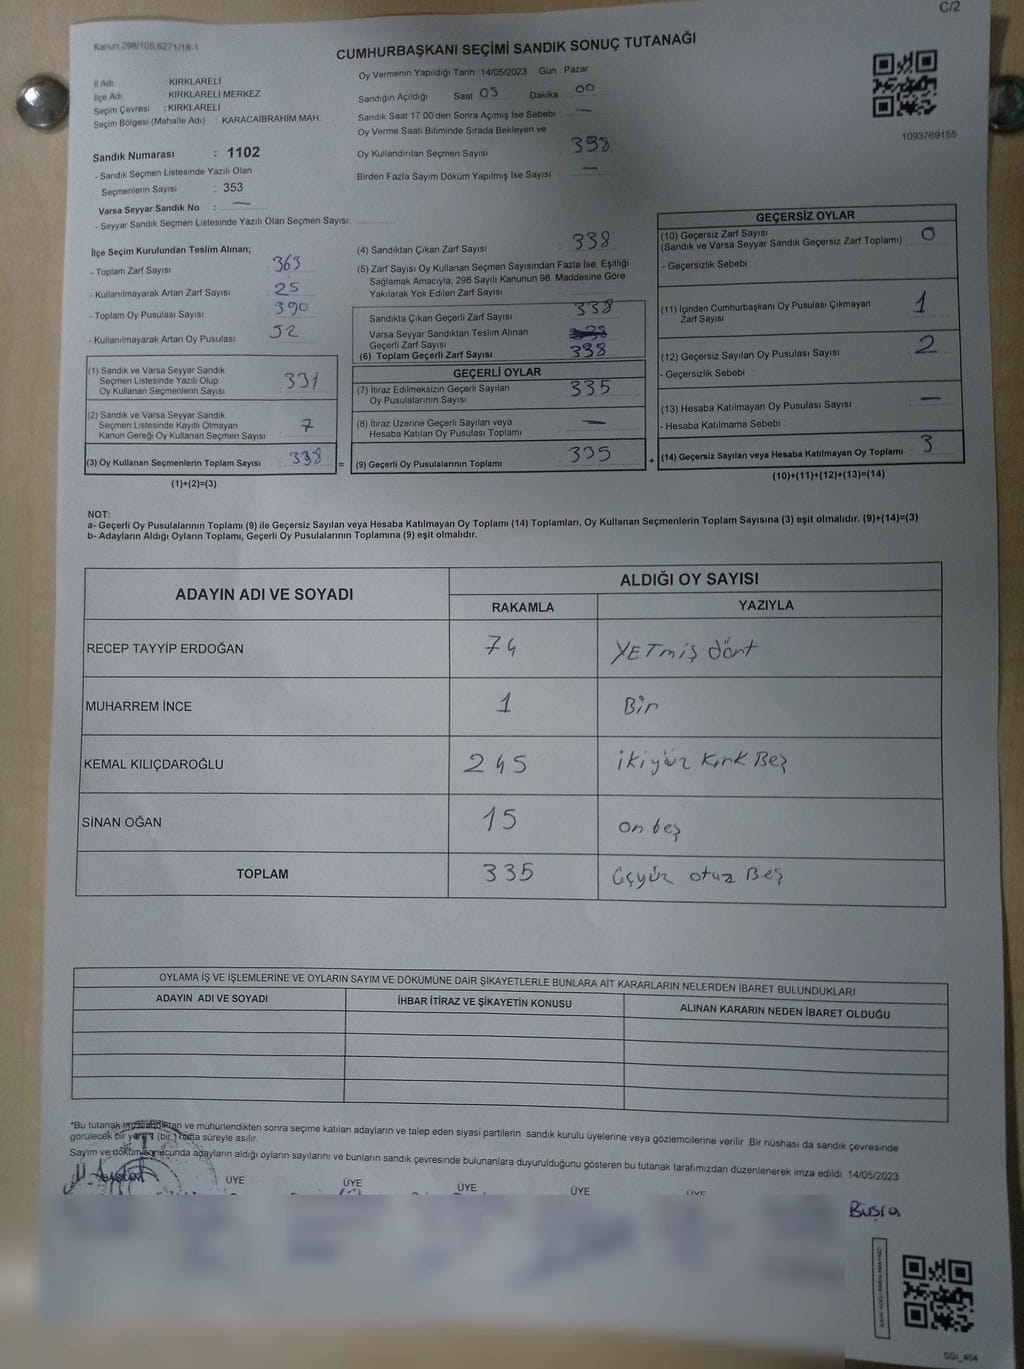 C/2
Kanun 298/105,6271/18-1
CUMHURBAŞKANI SEÇİMİ SANDIK SONUÇ TUTANAĞI
İl Adı KIRKLARELİ
İlçe Adı KIRKLARELİ MERKEZ
Seçim Çevresi : KIRKLARELİ
Seçim Bölgesi (Mahalle Adı) : KARACAİBRAHİM MAH.
Sandık Numarası : 1102
- Sandık Seçmen Listesinde Yazılı Olan
Seçmenlerin Sayısı : 353
Varsa Seyyar Sandık No : —
- Seyyar Sandık Seçmen Listesinde Yazılı Olan Seçmen Sayısı:
Oy Vermenin Yapıldığı Tarih 14/05/2023 Gün : Pazar
Sandığın Açıldığı Saat 05 Dakika 00
Sandık Saat 17:00'den Sonra Açımış İse Sebebi : —
Oy Verme Saati Bitiminde Sırada Bekleyen ve
Oy Kullandırılan Seçmen Sayısı 398
Birden Fazla Sayım Döküm Yapılmış İse Sayısı —
1093769155
İlçe Seçim Kurulundan Teslim Alınan;
- Toplam Zarf Sayısı 363
- Kullanılmayarak Artan Zarf Sayısı 25
- Toplam Oy Pusulası Sayısı 390
- Kullanılmayarak Artan Oy Pusulası 52
(1) Sandık ve Varsa Seyyar Sandık
Seçmen Listesinde Yazılı Olup
Oy Kullanan Seçmenlerin Sayısı 331
(2) Sandık ve Varsa Seyyar Sandık
Seçmen Listesinde Kayıtlı Olmayan
Kanun Gereği Oy Kullanan Seçmen Sayısı 7
(3) Oy Kullanan Seçmenlerin Toplam Sayısı 338 =
(1)+(2)=(3)
(4) Sandıktan Çıkan Zarf Sayısı 338
(5) Zarf Sayısı Oy Kullanan Seçmen Sayısından Fazla İse, Eşitliği
Sağlamak Amacıyla, 298 Sayılı Kanunun 98. Maddesine Göre
Yakılarak Yok Edilen Zarf Sayısı
Sandıkta Çıkan Geçerli Zarf Sayısı 338
Varsa Seyyar Sandıktan Teslim Alınan
Geçerli Zarf Sayısı
(6) Toplam Geçerli Zarf Sayısı 338
GEÇERLİ OYLAR
(7) İtiraz Edilmeksizin Geçerli Sayılan
Oy Pusulalarının Sayısı 335
(8) İtiraz Üzerine Geçerli Sayılan veya
Hesaba Katılan Oy Pusulası Toplamı —
(9) Geçerli Oy Pusulalarının Toplamı 335 +
GEÇERSİZ OYLAR
(10) Geçersiz Zarf Sayısı
(Sandık ve Varsa Seyyar Sandık Geçersiz Zarf Toplamı) : 0
- Geçersizlik Sebebi
(11) İçinden Cumhurbaşkanı Oy Pusulası Çıkmayan
Zarf Sayısı 1
(12) Geçersiz Sayılan Oy Pusulası Sayısı : 2
- Geçersizlik Sebebi :
(13) Hesaba Katılmayan Oy Pusulası Sayısı : —
- Hesaba Katılmama Sebebi :
(14) Geçersiz Sayılan veya Hesaba Katılmayan Oy Toplamı : 3
(10)+(11)+(12)+(13)=(14)
NOT:
a- Geçerli Oy Pusulalarının Toplamı (9) ile Geçersiz Sayılan veya Hesaba Katılmayan Oy Toplamı (14) Toplamları, Oy Kullanan Seçmenlerin Toplam Sayısına (3) eşit olmalıdır. (9)+(14)=(3)
b- Adayların Aldığı Oyların Toplamı, Geçerli Oy Pusulalarının Toplamına (9) eşit olmalıdır.
ADAYIN ADI VE SOYADI ALDIĞI OY SAYISI
RAKAMLA YAZIYLA
RECEP TAYYİP ERDOĞAN 74 YETmiş dört
MUHARREM İNCE 1 Bir
KEMAL KILIÇDAROĞLU 245 ikiyüz Kırk Beş
SİNAN OĞAN 15 on beş
TOPLAM 335 üçyüz otuz Beş
OYLAMA İŞ VE İŞLEMLERİNE VE OYLARIN SAYIM VE DÖKÜMÜNE DAİR ŞİKAYETLERLE BUNLARA AİT KARARLARIN NELERDEN İBARET BULUNDUKLARI
ADAYIN ADI VE SOYADI İHBAR İTİRAZ VE ŞİKAYETİN KONUSU ALINAN KARARIN NEDEN İBARET OLDUĞU
*Bu tutanak imzalandıktan ve mühürlendikten sonra seçime katılan adayların ve talep eden siyasi partilerin sandık kurulu üyelerine veya gözlemcilerine verilir. Bir nüshası da sandık çevresinde
görülecek bir yere 1 (bir) hafta süreyle asılır.
Sayım ve döküm sonucunda adayların aldığı oyların sayılarını ve bunların sandık çevresinde bulunanlara duyurulduğunu gösteren bu tutanak tarafımızdan düzenlenerek imza edildi. 14/05/2023
ÜYE ÜYE ÜYE ÜYE ÜYE
Büşra